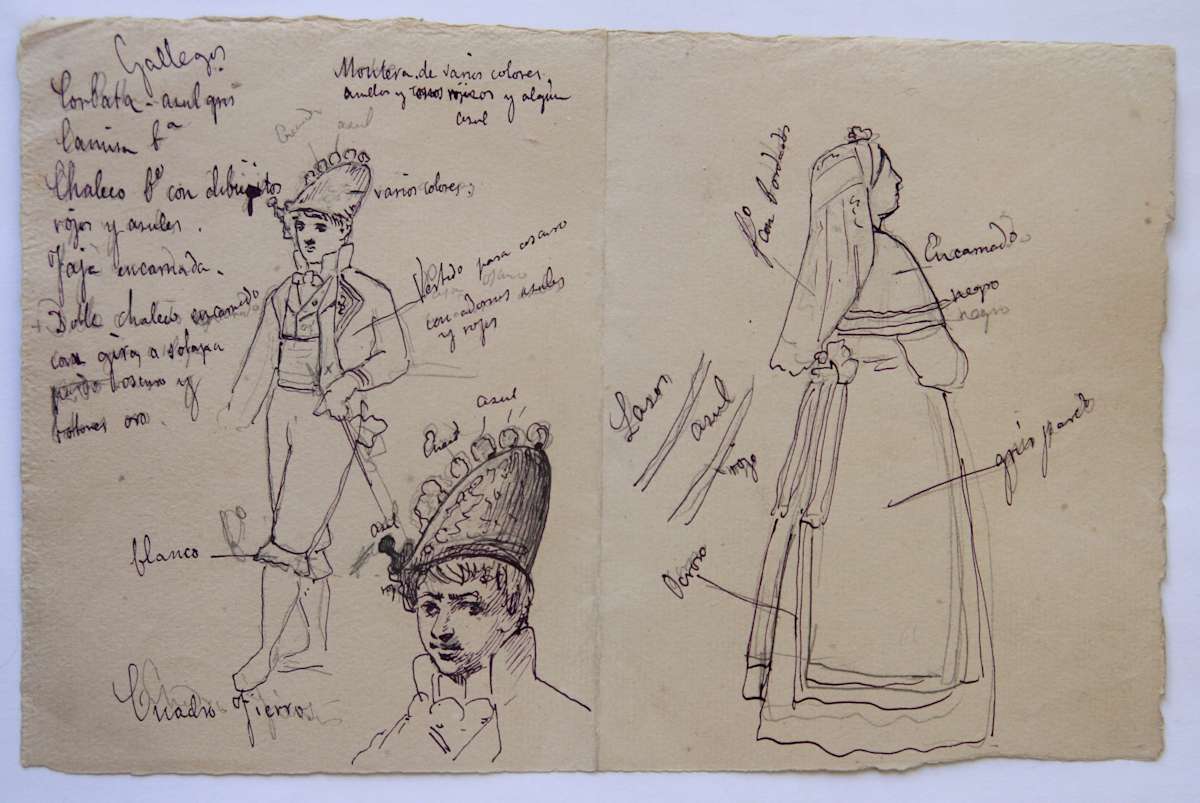 Gallegos
Corbata - azul gris
Camisa bª
Chaleco bº con dibujitos
rojos y azules.
Faja encarnada.
Doble chaleco encarnado
con gira a solapa
pardo oscuro y
botones oro.
Montera de varios colores,
y rojizos y algun
azul
azul
varios colores,
Vestido pardo oscuro
con adornos azules
y rojos
azul
Encard
azul
blanco
Cuadro Fierros
bº
con bordados
Encarnado
negro
negro
Lazos
azul
rojo
gris pardo